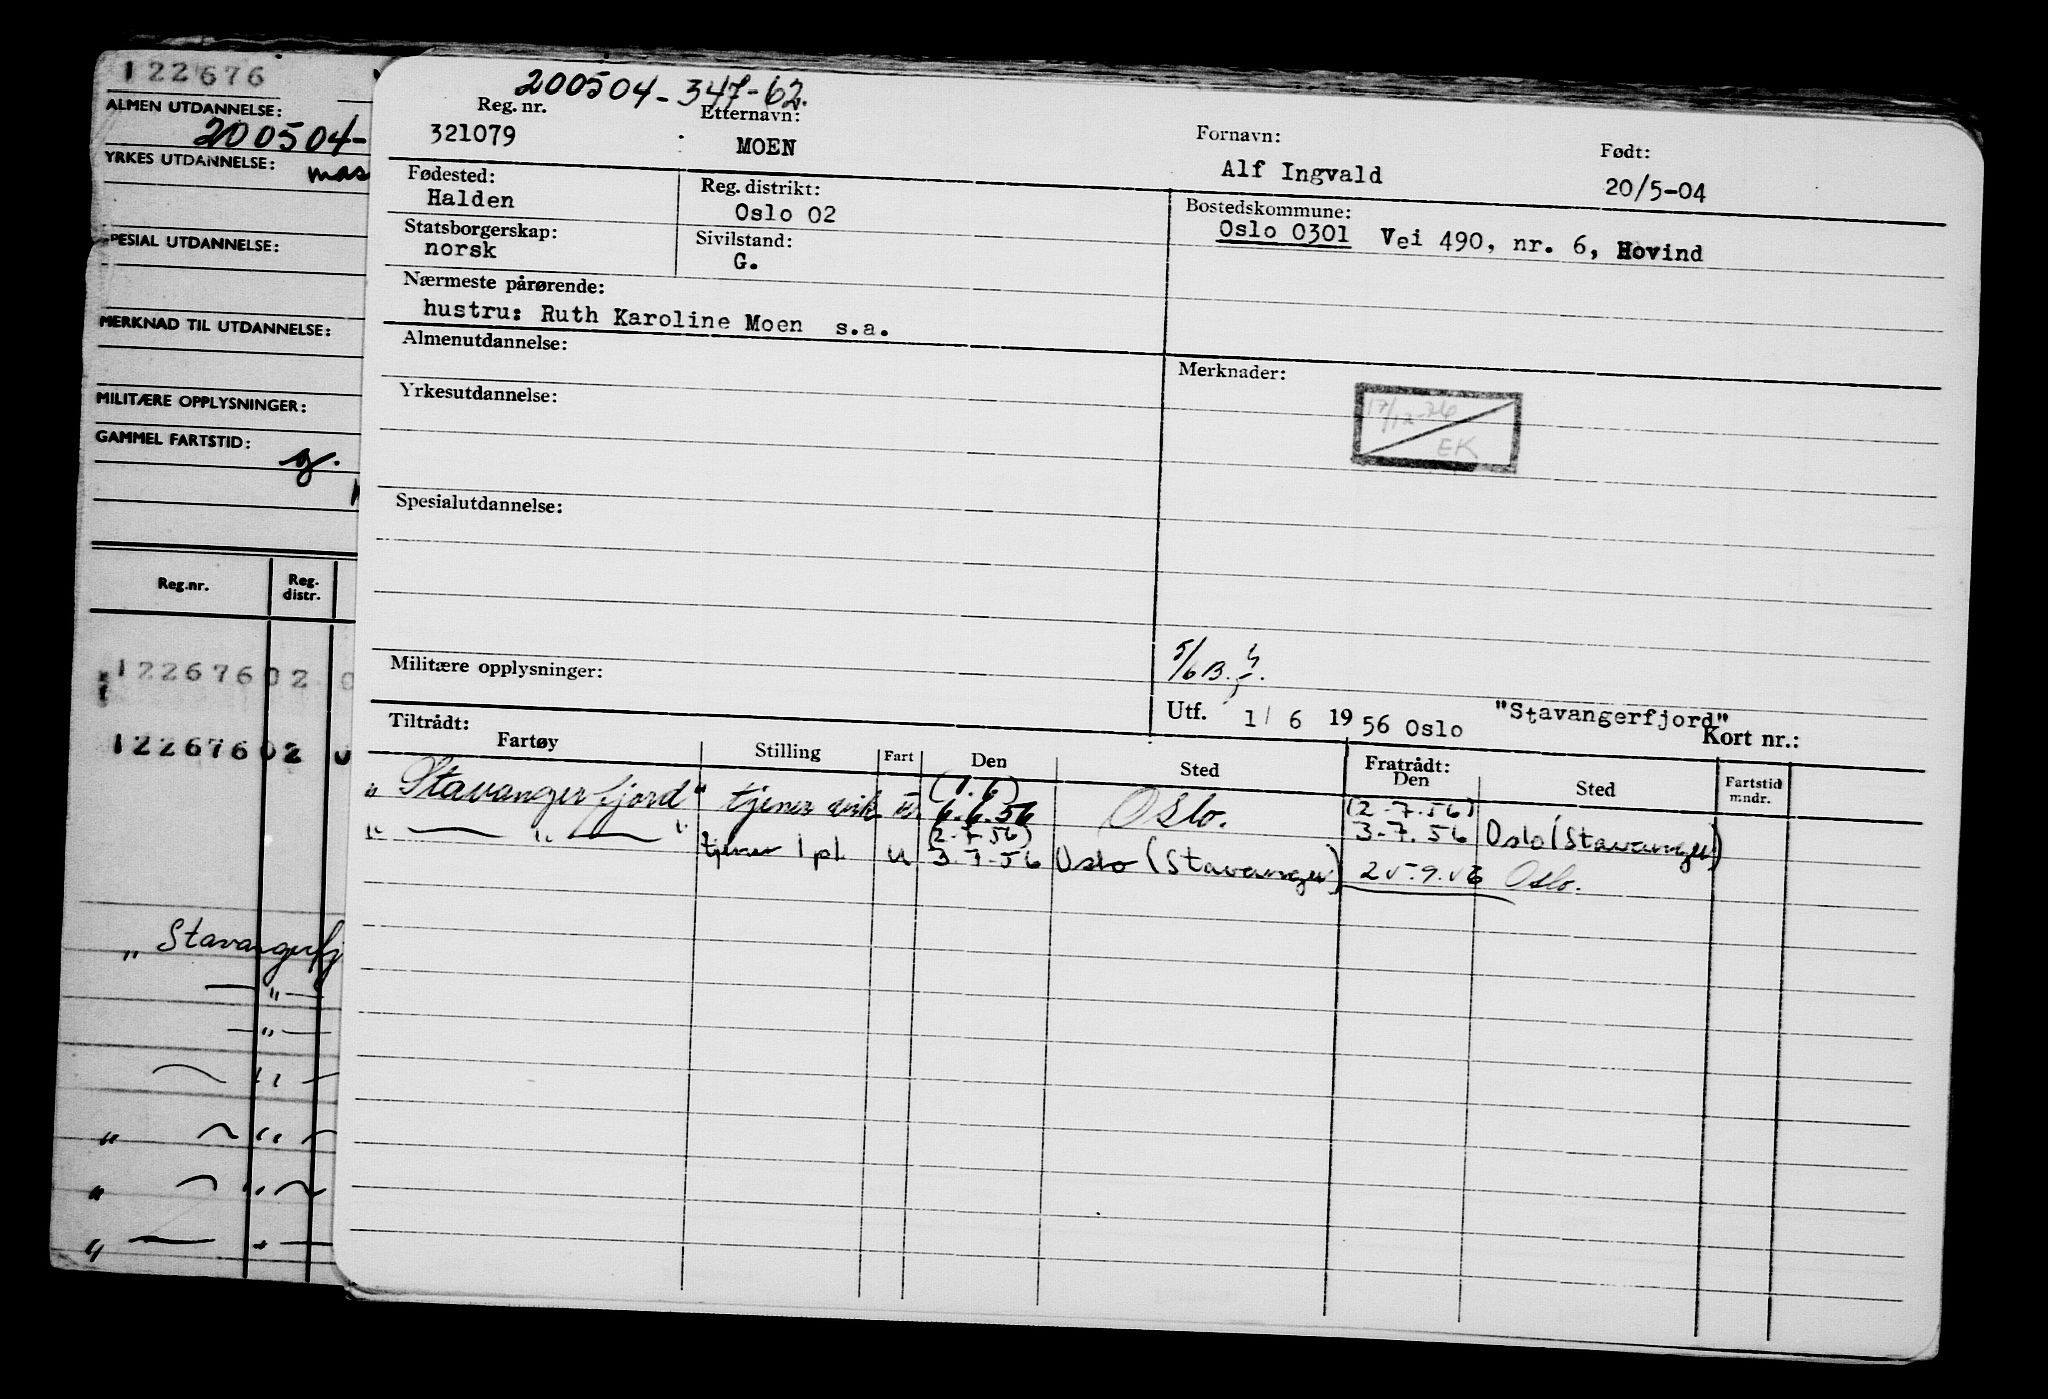 122676
ALMEN UTDANNELSE:
200504-
YRKES UTDANNELSE: mas
SPESIAL UTDANNELSE:
MERKNAD TIL UTDANNELSE:
MILITÆRE OPPLYSNINGER:
GAMMEL FARTSTID:
g.
Reg.nr. Reg. distr.
12267602
12267602
„ Stavangerfj
— " —
— " —
— " —
„ — " —
„ — " —
„ — " —
200504-347-62.
Reg. nr. Etternavn: Fornavn: Født:
321079 MOEN Alf Ingvald 20/5-04
Fødested: Reg. distrikt: Bostedskommune:
Halden Oslo 02 Oslo 0301 Vei 490, nr. 6, Hovind
Statsborgerskap: Sivilstand:
norsk G.
Nærmeste pårørende:
hustru: Ruth Karoline Moen s.a.
Almenutdannelse: Merknader:
17/12-76
EK
Yrkesutdannelse:
Spesialutdannelse:
Militære opplysninger:
5/6 B.
Utf. 1/ 6 1956 Oslo "Stavangerfjord"
Kort nr.:
Tiltrådt: Fratrådt:
Fartøy Stilling Fart Den Sted Den Sted Fartstid mndr.
(1.6) (2-7.56)
„ Stavangerfjord" tjener 6.6.56 Oslo. 3-7.56 Oslo (Stavanger)
(2-7.56)
" — " — " tjener 1 pl u 3-7-56 Oslo (Stavanger) 25.9.56 Oslo.